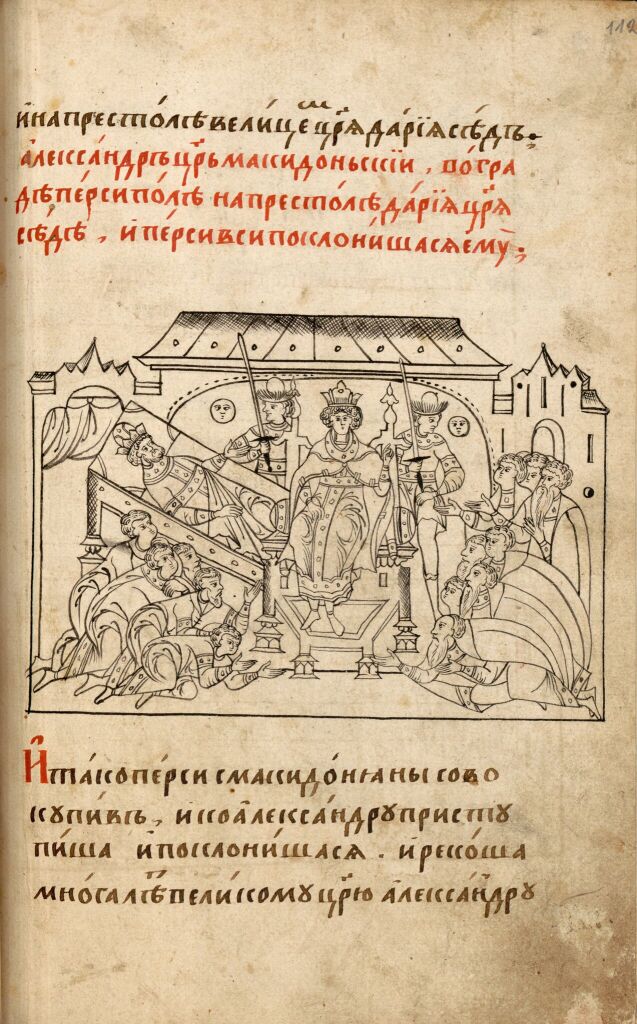 112
и҆ на престо́лѣ вели́цемъ цр҃я да́рїя сѣ́дъ.
а҆леѯа́ндръ цр҃ь макидо́ньскїи, во́ гра
дѣ пе́рсипо́лѣ на престо́лѣ да́рїя цр҃я
сѣ́дѣ, и҆ пе́рси вси поклони́шася ему̀;
И҆ та́ко пе́рси с макидо́няны сово
купи́въ, и ко а҆леѯа́ндру присту
пи́ша и҆ поклони́шася. и҆ реко́ша
мно́га лѣ́т вели́кому цр҃ю а҆леѯа́ндру